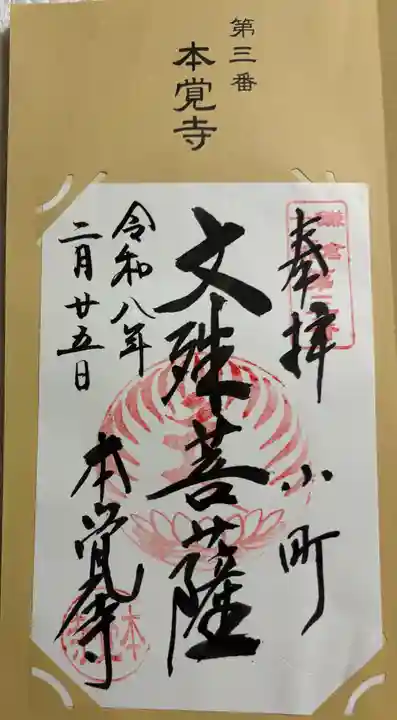 第三番
本覚寺
奉拝
小町
文殊菩薩
令和八年
二月廿五日
本覚寺